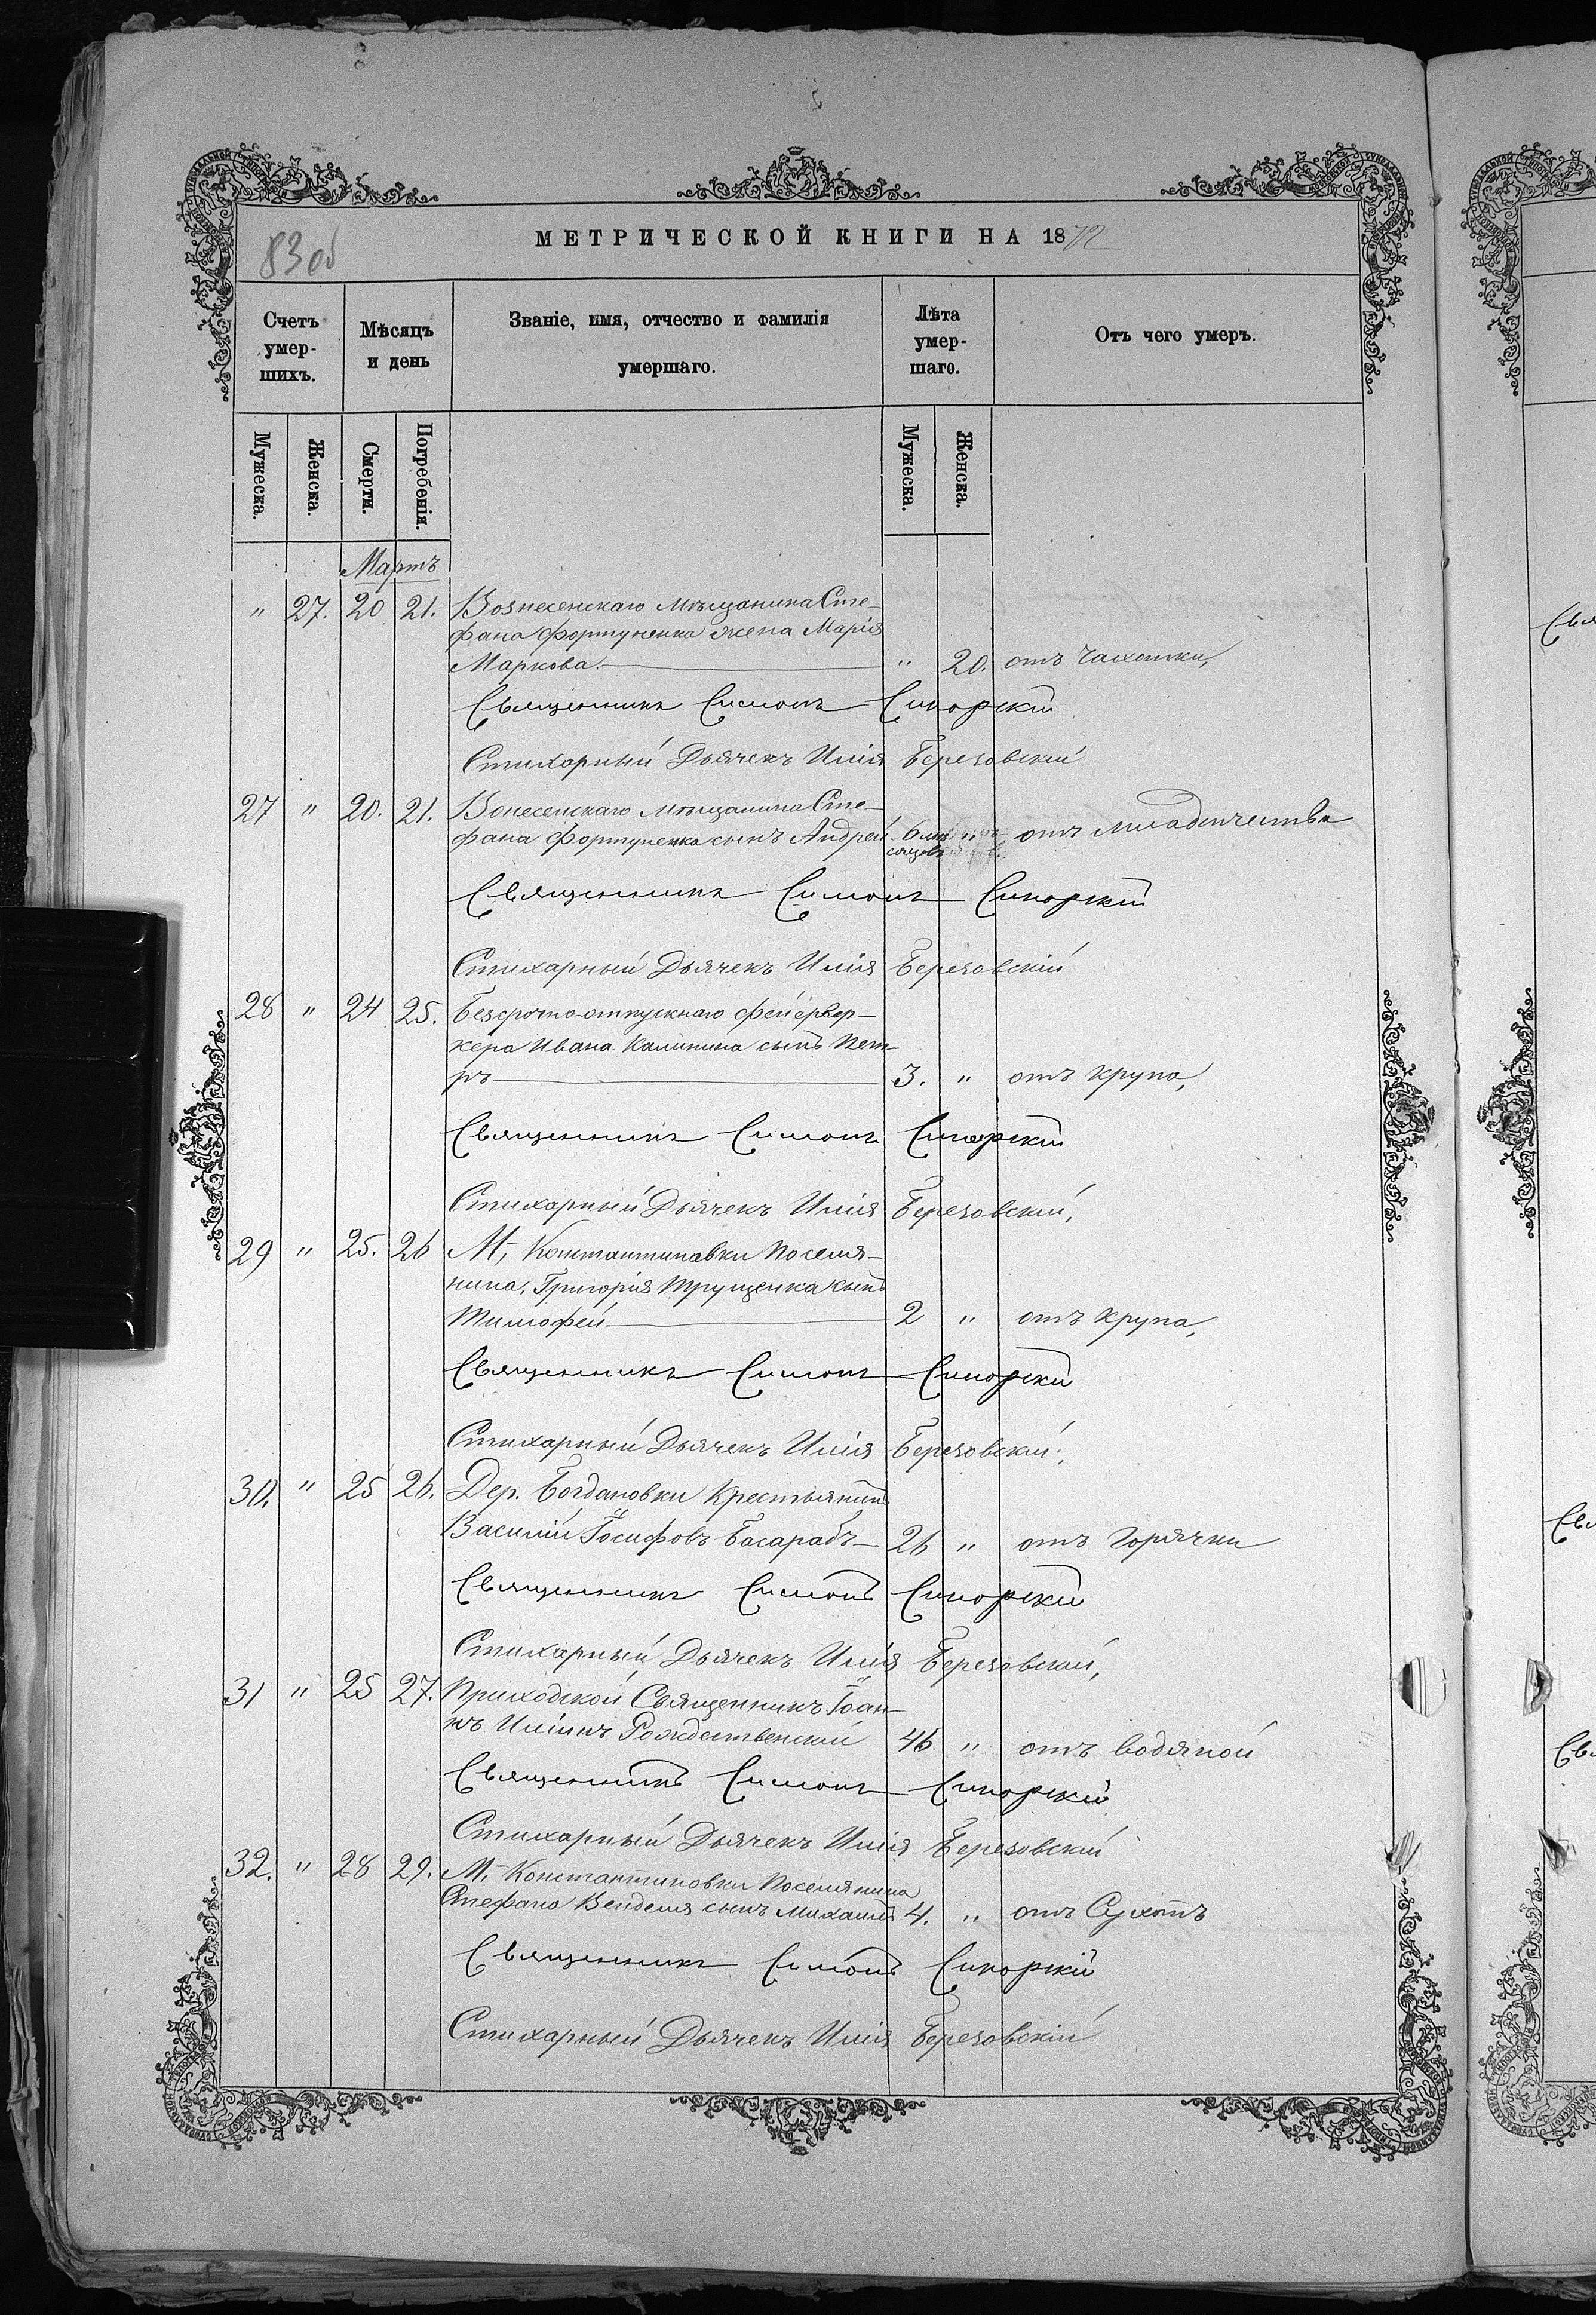 83 об
МЕТРИЧЕСКОЙ КНИГИ НА 1872
Счетъ умер-шихъ.
Мѣсяцъ и день
Званіе, имя, отчество и фамилія умершаго.
Лѣта умер-шаго.
Отъ чего умеръ.
Мужеска. Женска. Смерти. Погребенія. Мужеска. Женска.
Мартъ
" 27. 20 21. Вознесенскаго мѣщанина Сте-
фана Фортуненка жена Марія
Маркова. " 20. отъ Чахотки,
Священникъ Симонъ Сикорскій
Стихарный Дьячекъ Илія Березовскій
27 " 20. 21. Вонесенскаго мѣщанина Сте-
фана Фортуненка сынъ Андрей 6 мѣ
сяцовъ отъ младенчества
Священникъ Симонъ Сикорскій
Стихарный Дьячекъ Илія Березовскій
28 " 24 25. Безсрочно-отпускнаго фейервер-
кера Ивана Калинина сынъ Пет-
ръ 3. " отъ крупа,
Священникъ Симонъ Сикорскій
Стихарный Дьячекъ Илія Березовскій,
29 " 25. 26 М, Константиновки Поселя-
нина, Григорія Трущенка сынъ
Тимофей 2 " отъ крупа,
Священникъ Симонъ Сикорскій
Стихарный Дьячекъ Илія Березовскій,
30. " 25 26. Дер. Богдановки Крестьянинъ
Василій Іосифовъ Басарабъ 26 " отъ Горячки
Священникъ Симонъ Сикорскій
Стихарный Дьячекъ Илія Березовскій,
31 " 25 27. Приходской Священникъ Іоан-
нъ Иліинъ Рождественскій 46 " отъ водяной
Священникъ Симонъ Сикорскій
Стихарный Дьячекъ Илія Березовскій
32. " 28 29. М, Константиновки Поселянина
Стефана Венделя сынъ Михаилъ 4. " отъ Сухотъ
Священникъ Симонъ Сикорскій
Стихарный Дьячекъ Илія Березовскій